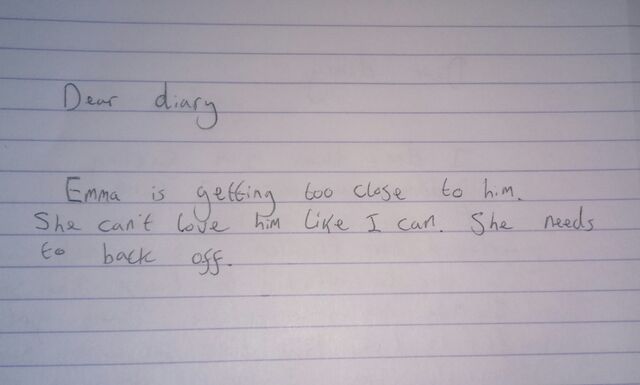 Dear diary
Emma is getting too close to him.
She can't love him like I can. She needs
to back off.